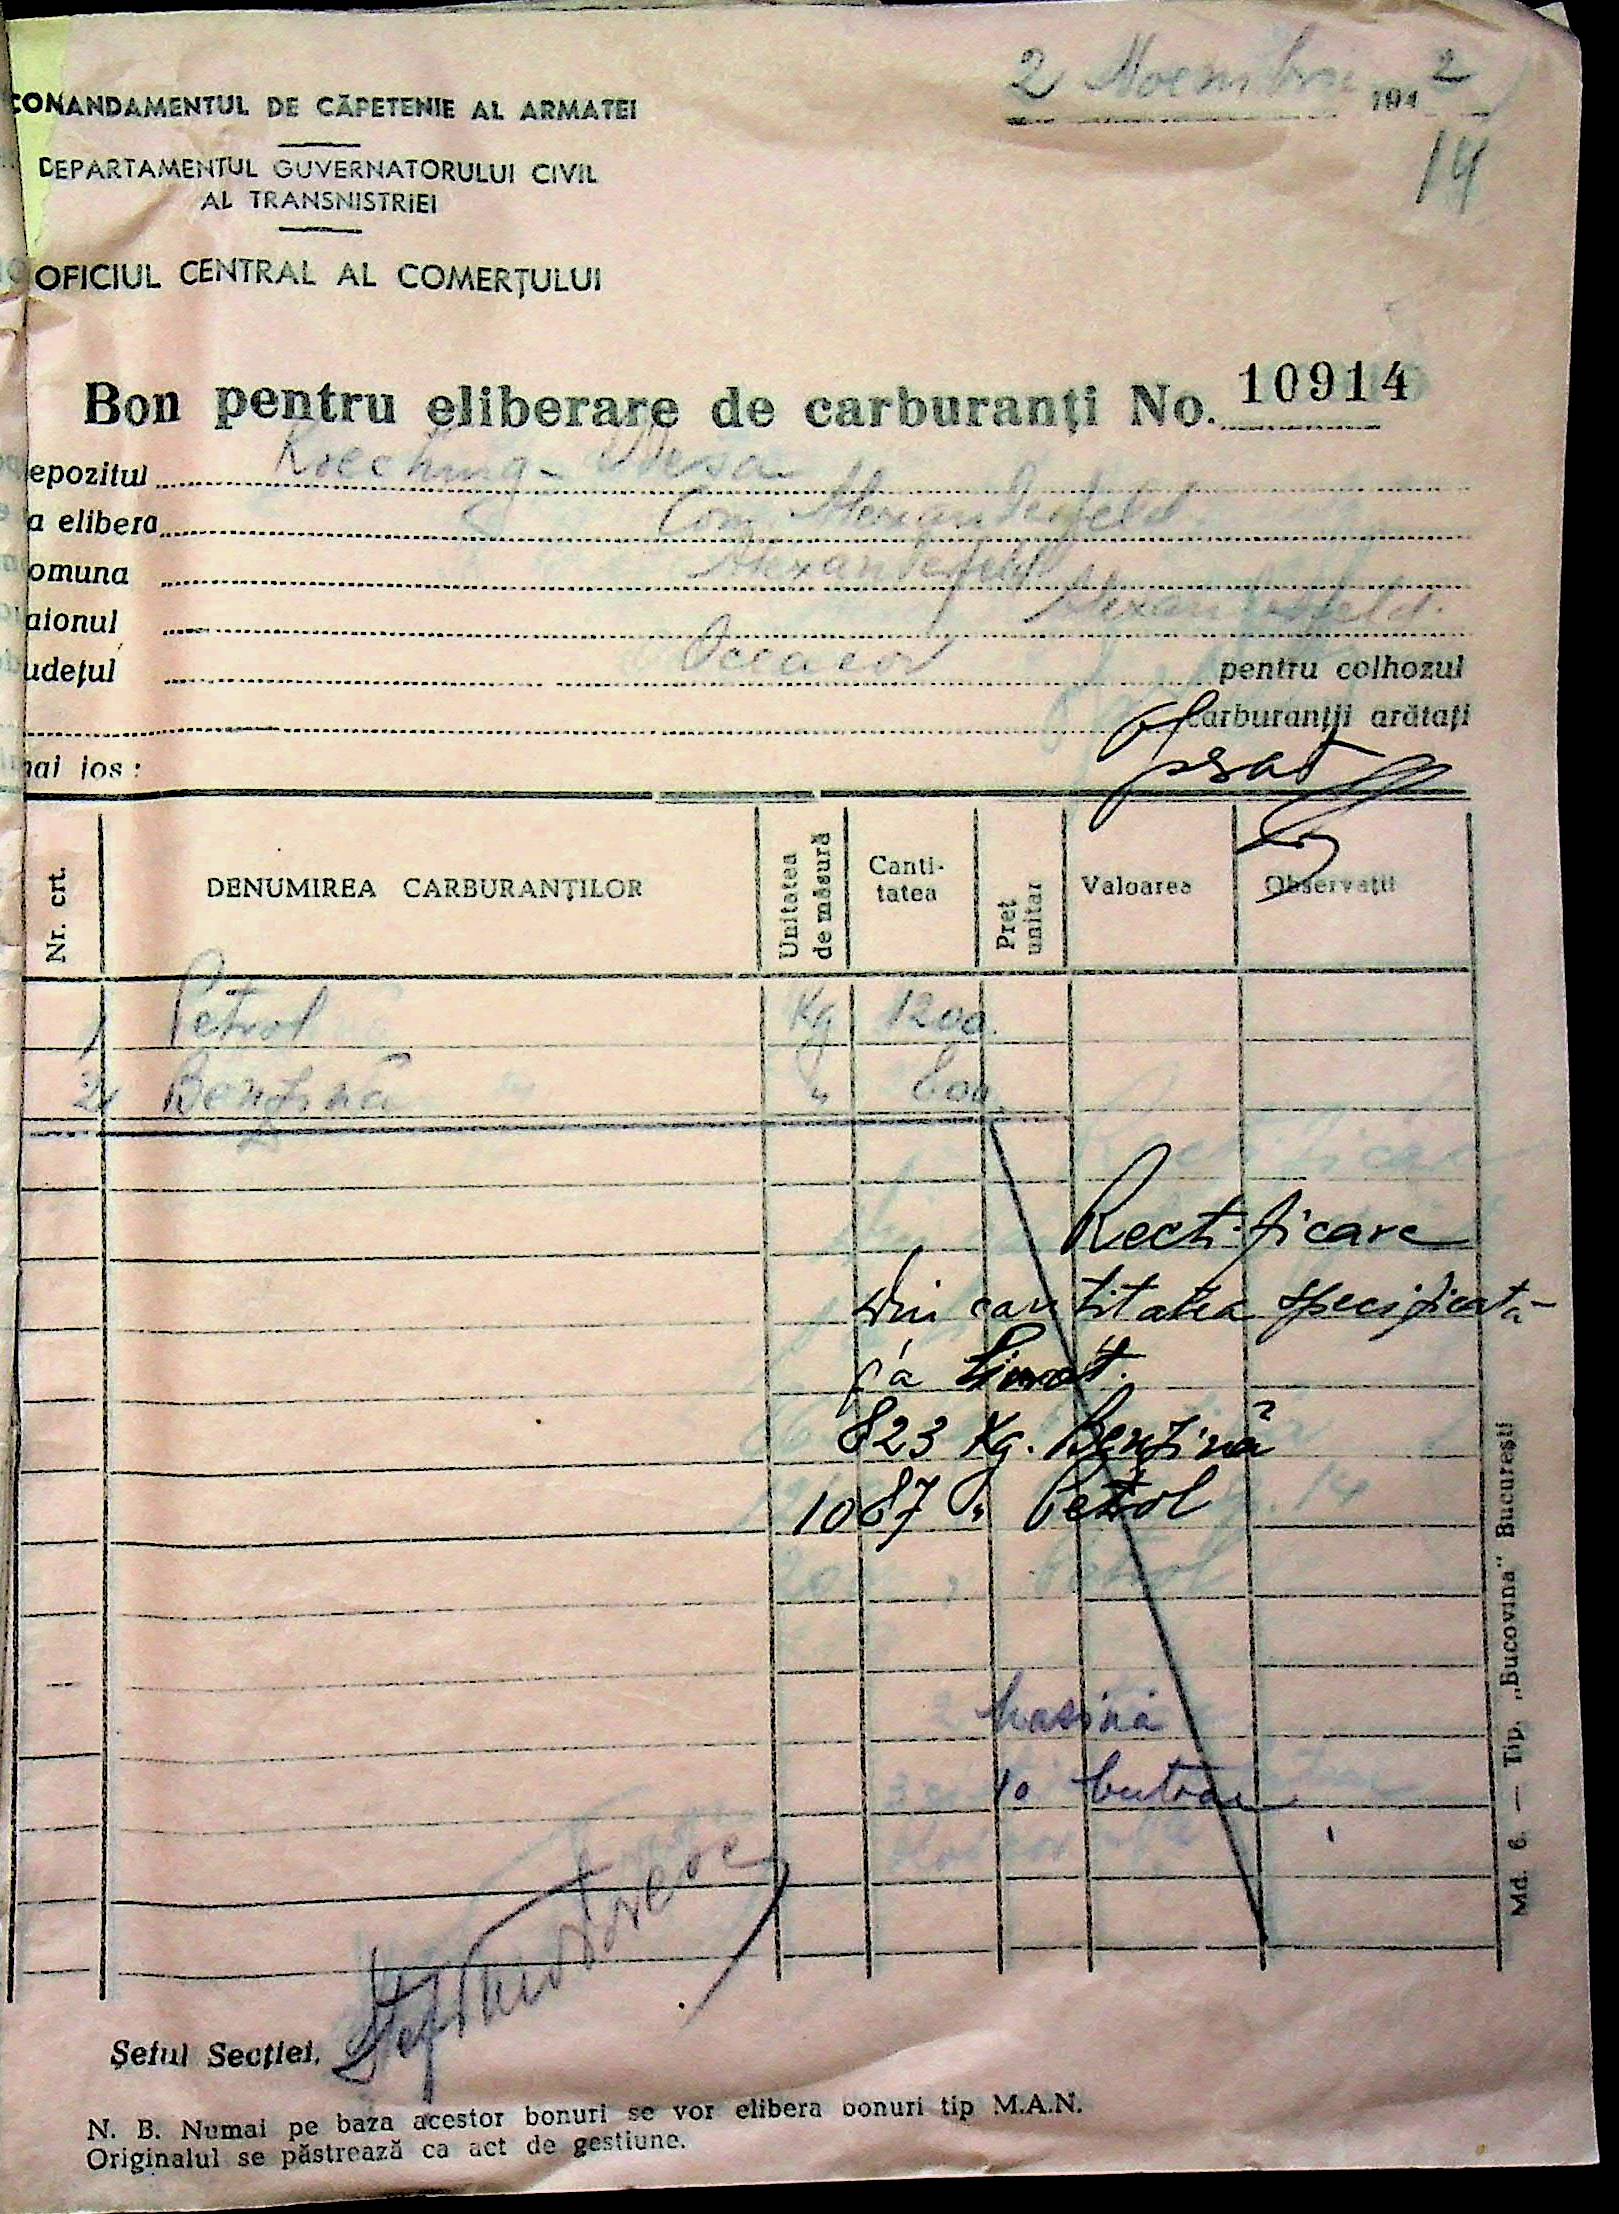 CONANDAMENTUL DE CĂPETENIE AL ARMATEI
2 Noembrie 1942
14
DEPARTAMENTUL GUVERNATORULUI CIVIL
AL TRANSNISTRIEI
OFICIUL CENTRAL AL COMERȚULUI
Bon pentru eliberare de carburanți No. 10914
epozitul Odesa
a elibera Com Alexanderfeld
omuna Alexanderfeld
aionul Alexanderfeld.
udețul Oceacov pentru colhozul
carburanții arătați
mai jos:
Nr. crt. DENUMIREA CARBURANȚILOR Unitatea de măsură Canti-tatea Preț unitar Valoarea Observații
1 Petrol Kg 1200.
2 Benzină " 800
Rectificare
din cantitatea specificată
823 Kg. Benzină
1087 " Petrol
Masina
10 butoae
Șeful Secției,
N. B. Numai pe baza acestor bonuri se vor elibera bonuri tip M.A.N.
Originalul se păstrează ca act de gestiune.
Md. 6. — Tip. „Bucovina" București